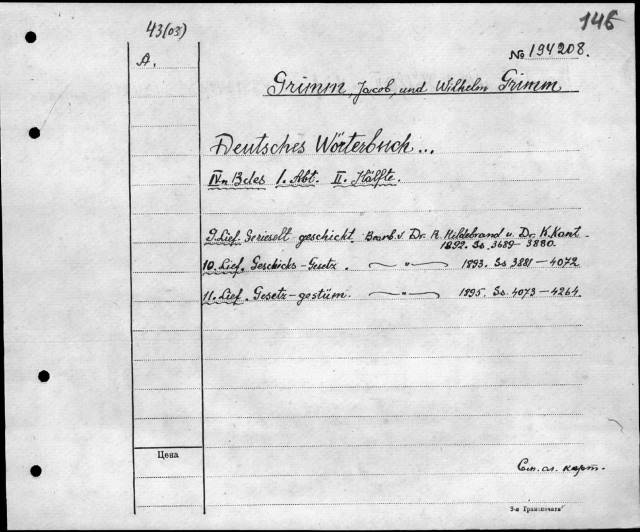 146
43(03)
A.
No 194208.
Grimm, Jacob, und Wilhelm Grimm
Deutsches Wörterbuch...
IVn Bdes I. Abt. II. Hälfte.
9. Lief. Gerieselt geschickt. Bearb. v. Dr. R. Hildebrand u. Dr. K. Kant.
1892. Ss. 3689-3880.
10. Lief. Geschicks-Gesetz. — " — 1893. Ss. 3881-4072
11. Lief. Gesetz-gestüm. — " — 1895. Ss. 4073-4264.
Цена
См. сл. карт.
3-я Транспечать